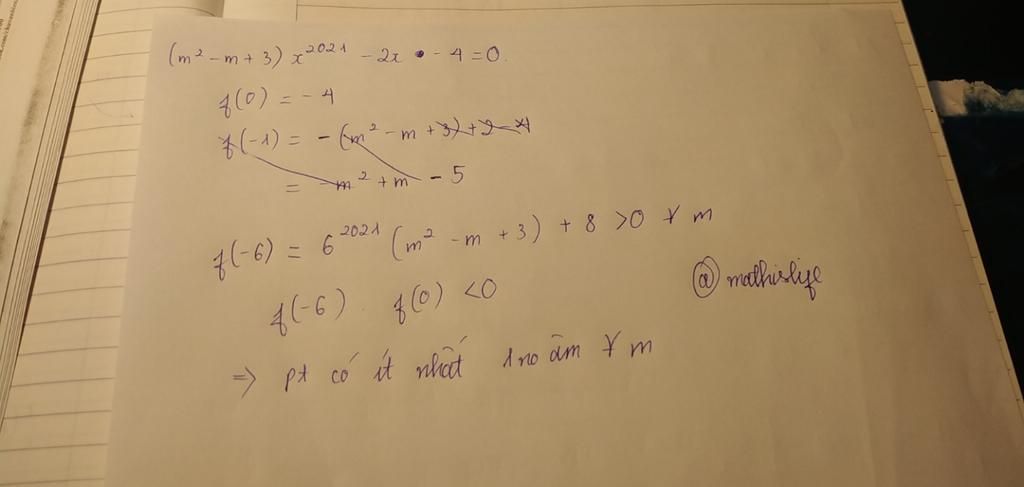 (m² - m + 3) x²⁰²¹ - 2x - 4 = 0.
f(0) = - 4
f(-1) = - (m² - m + 3) + 2 - 4
= - m² + m - 5
f(-6) = 6²⁰²¹ (m² - m + 3) + 8 > 0 ∀ m
@mathislife
f(-6) . f(0) < 0
=> pt có ít nhất 1 no âm ∀ m